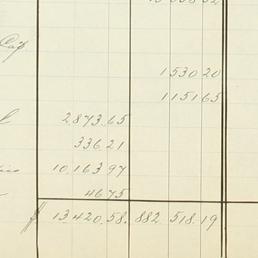 Cap
1530 20
1151 65
2873.65
336.21
10,163 97
46 75
13.420.58. 882 518.19